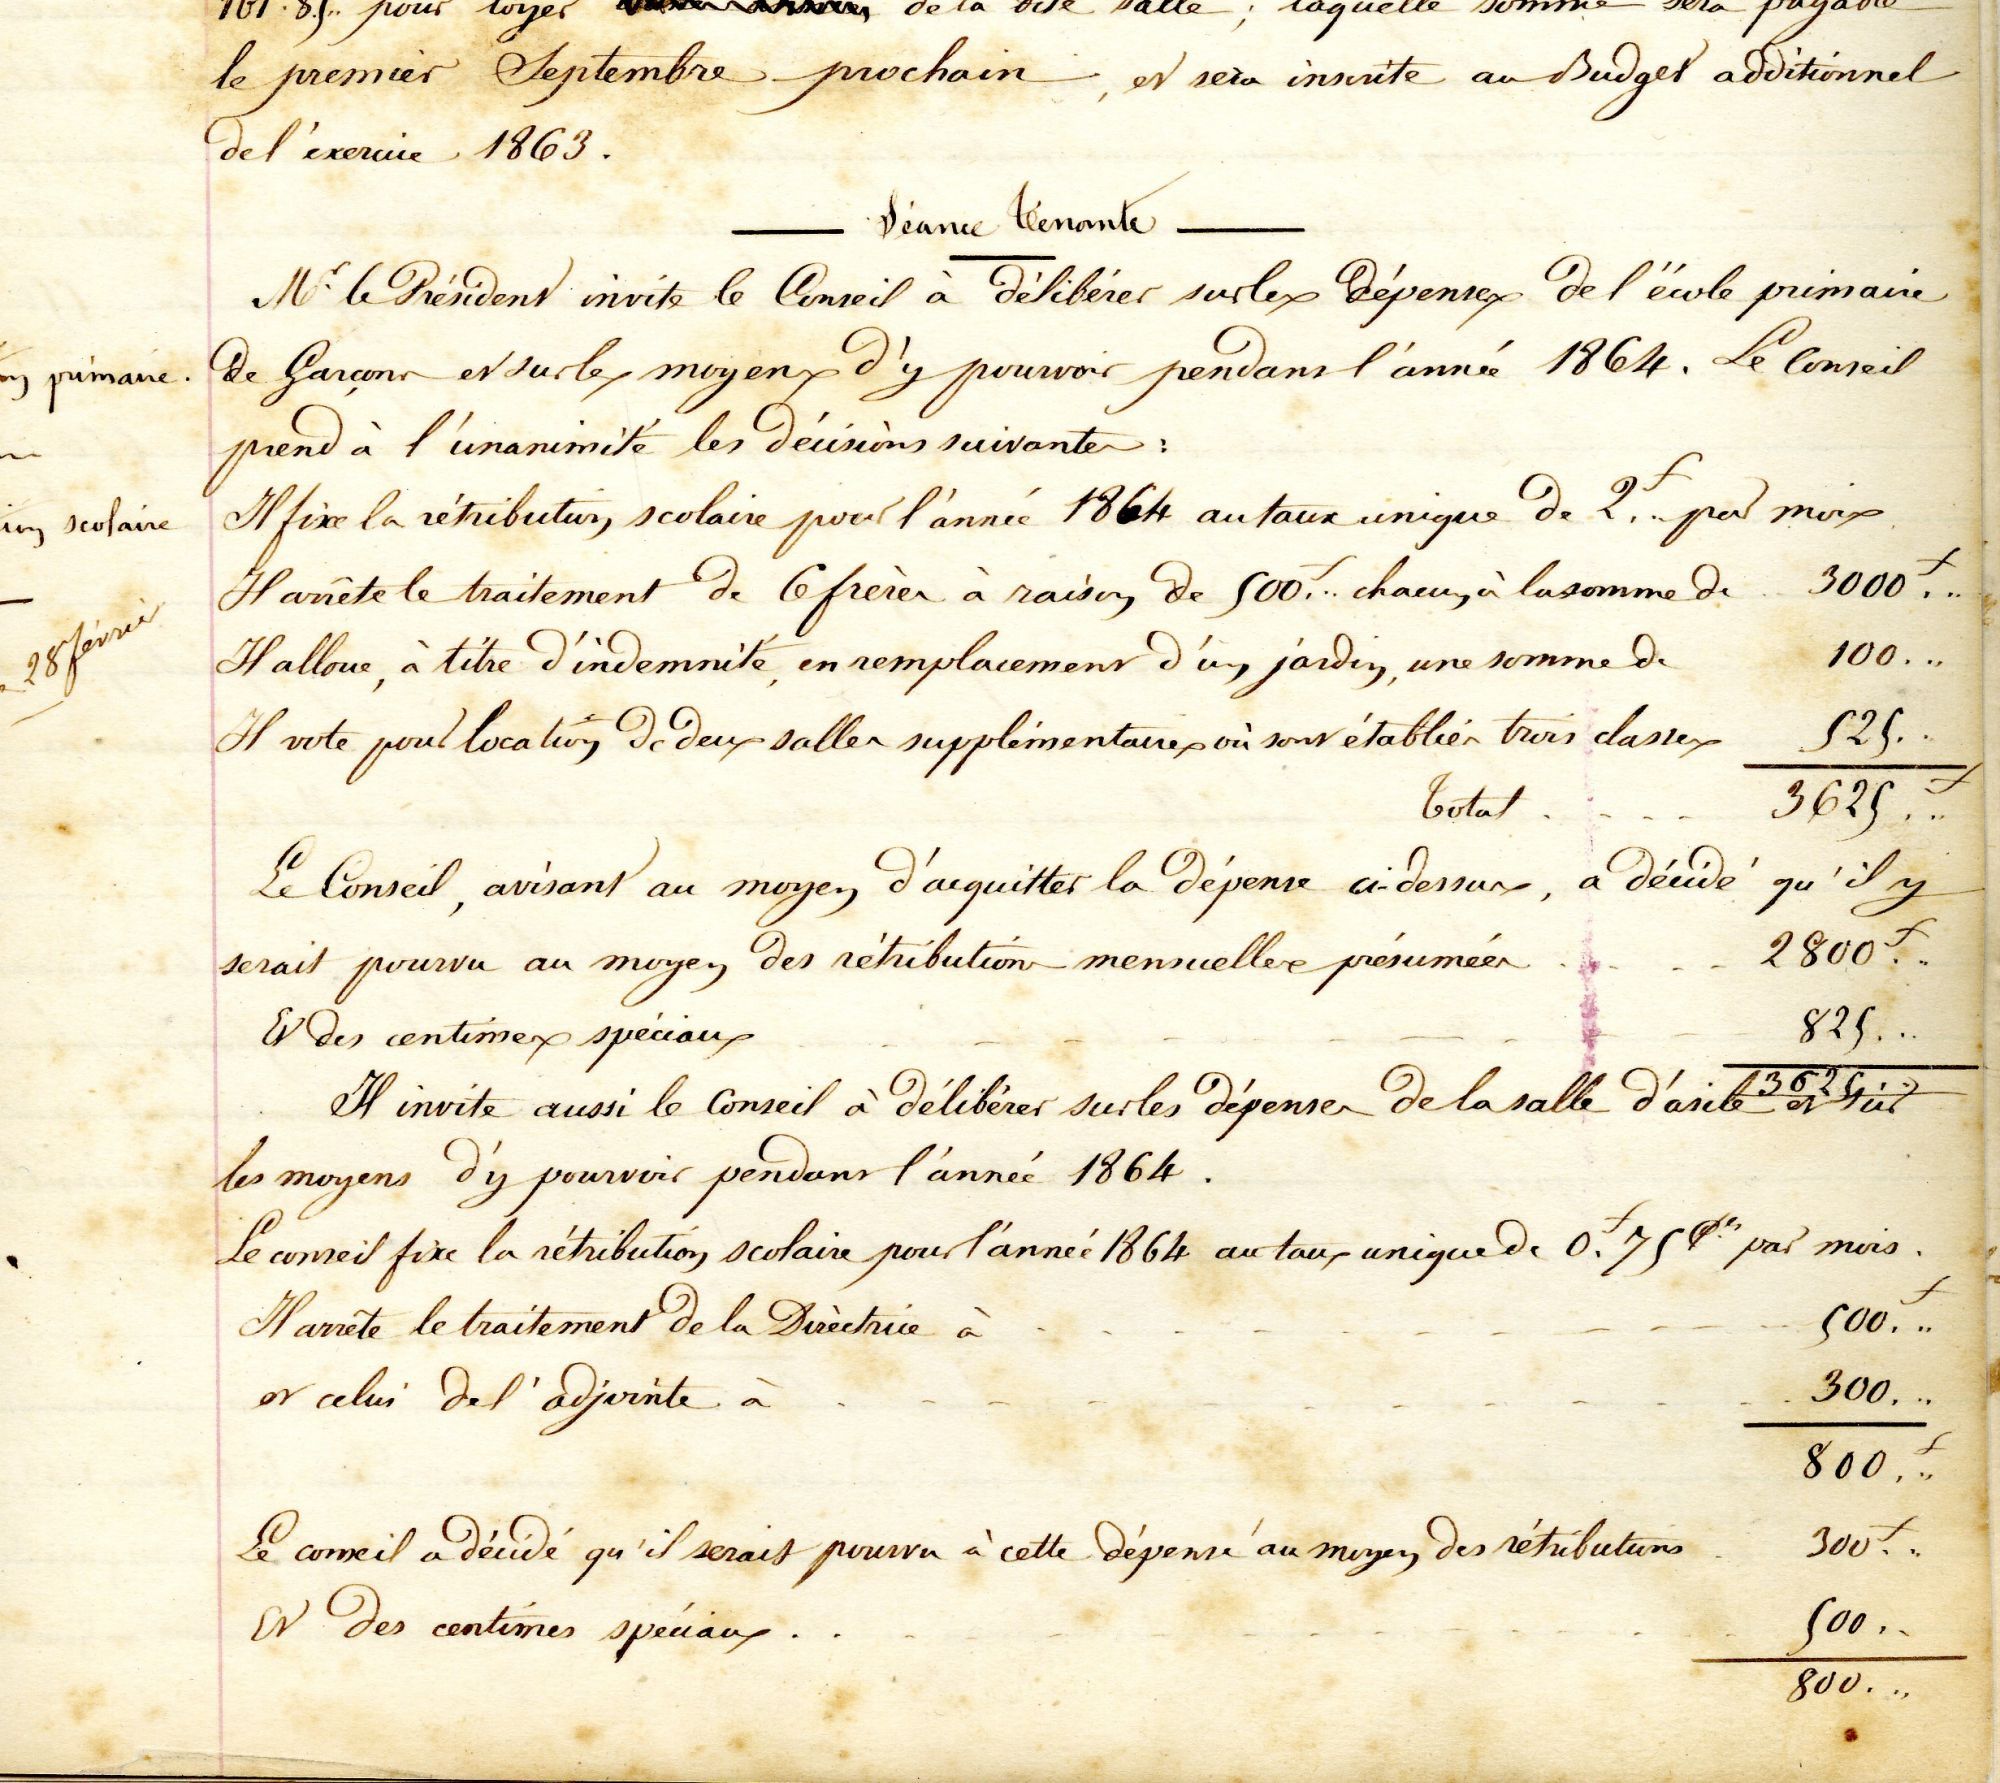 pour loyer de la dite salle ; laquelle somme sera payable
le premier Septembre prochain, et sera inscrite au Budget additionnel
de l'éxercice 1863.
Séance Tenante
Mr. le Président invite le Conseil à délibérer sur les dépenses de l'école primaire
primaire.
de Garçons et sur les moyens d'y pourvoir pendant l'année 1864. Le Conseil
prend à l'unanimité les décisions suivantes :
scolaire
Il fixe la rétribution scolaire pour l'année 1864 au taux unique de 2.f.. par mois
Il arrête le traitement de 6 frères à raison de 500.f.. chacun, à la somme de 3000.f..
28 février
Il alloue, à titre d'indemnité, en remplacement d'un jardin, une somme de 100...
Il vote pour location de deux salles supplémentaires où sont établies trois classes 525...
Total .... 3625.f..
Le Conseil, avisant au moyen d'acquitter la dépense ci-dessus, a décidé qu'il y
serait pourvu au moyen des rétributions mensuelles présumées .... 2800.f..
Et des centimes spéciaux 825...
3625...
Il invite aussi le Conseil à délibérer sur les dépenses de la salle d'asile et sur
les moyens d'y pourvoir pendant l'année 1864.
Le conseil fixe la rétribution scolaire pour l'année 1864 au taux unique de 0.f 75 par mois.
Il arrête le traitement de la Directrice à 500.f..
et celui de l'adjointe à 300...
800.f..
Le conseil a décidé qu'il serait pourvu à cette dépense au moyen des rétributions 300.f..
Et des centimes spéciaux.. 500...
800...